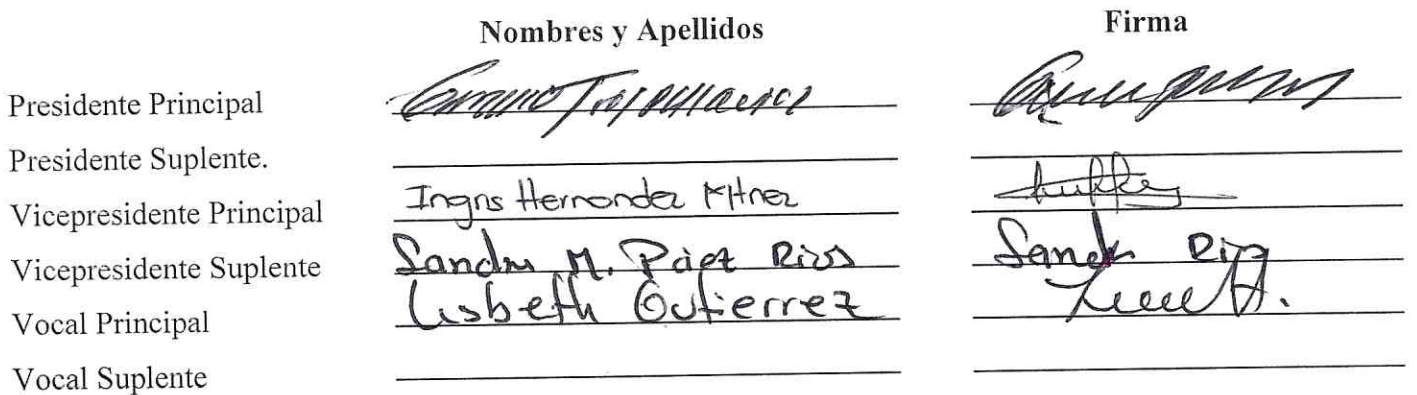 Nombres y Apellidos Firma
Presidente Principal
Presidente Suplente.
Vicepresidente Principal Hernandez
Vicepresidente Suplente Sandra M. Páez Rios Sandra Rios
Vocal Principal Lisbeth Gutierrez
Vocal Suplente